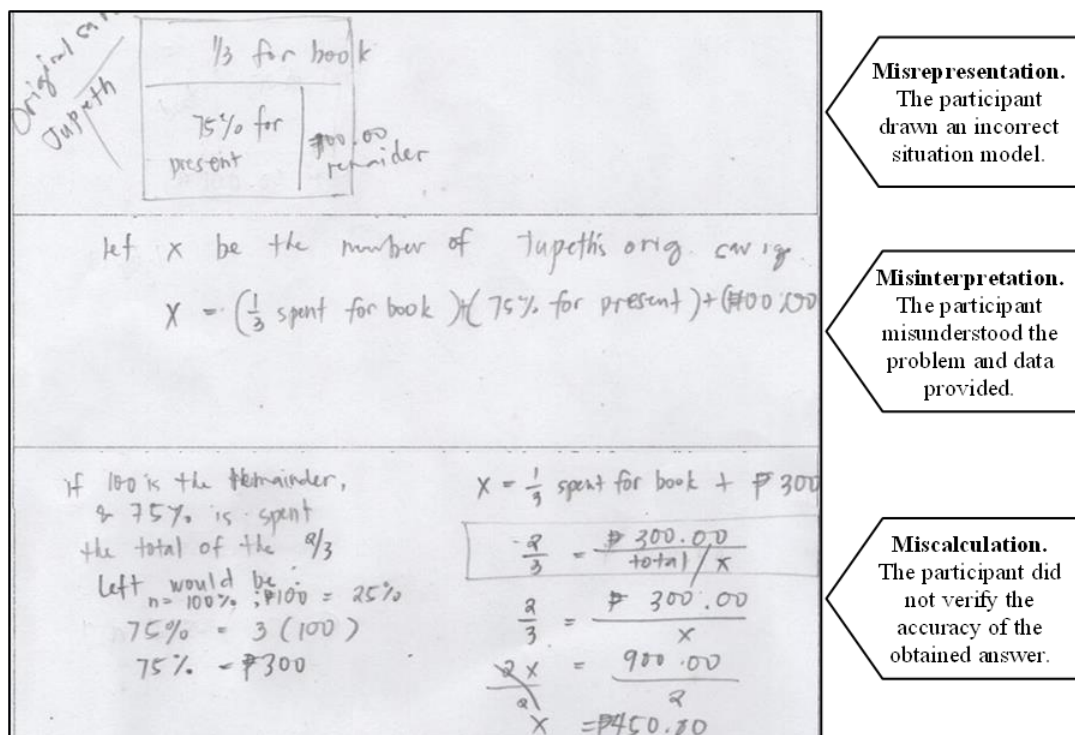 Original
Jupeth
1/3 for book
75% for
present
₱100.00
remaider
Misrepresentation.
The participant
drawn an incorrect
situation model.
let x be the number of Jupeth's orig.
X = (1/3 spent for book) + (75% for present) + (₱100.00
Misinterpretation.
The participant
misunderstood the
problem and data
provided.
if 100 is the remainder,
& 75% is spent
the total of the 2/3
Left would be:
n = 100% ; ₱100 = 25%
75% = 3 (100)
75% = ₱300
X = 1/3 spent for book + ₱300
2/3 = ₱300.00 / total/x
2/3 = ₱300.00 / x
2x / 2 = 900.00 / 2
X = ₱450.00
Miscalculation.
The participant did
not verify the
accuracy of the
obtained answer.